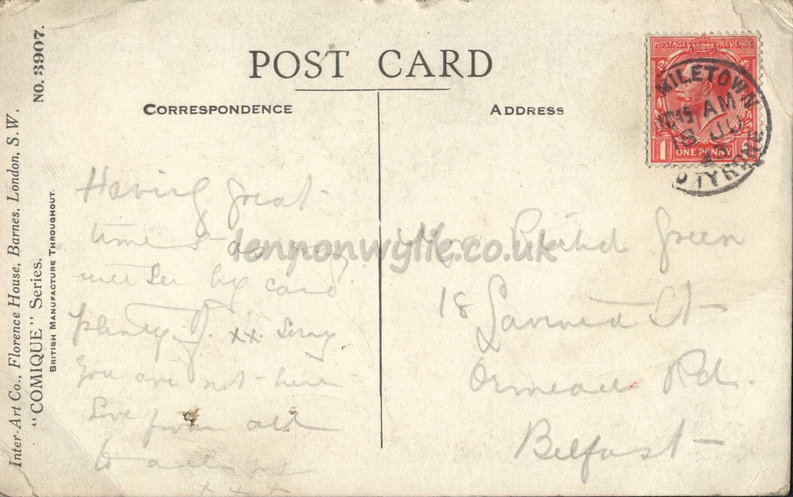 POST CARD
CORRESPONDENCE
ADDRESS
Having great
time & as you
will see by card
plenty of xx. Sorry
you are not here
Love from all
to all
x x x
Green
18
St
Ormeau Rd.
Belfast
POSTAGE REVENUE
ONE PENNY
MILETOWN
10.15 AM
18 JU
TYRONE
Inter-Art Co., Florence House, Barnes, London, S.W.
"COMIQUE" Series.
No. 3907.
BRITISH MANUFACTURE THROUGHOUT.
lennonwylie.co.uk